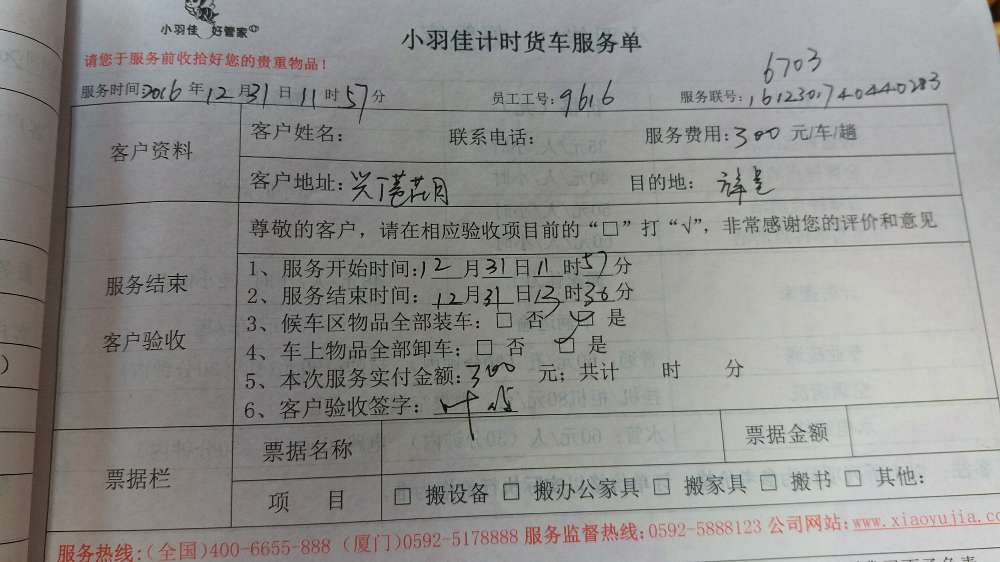 小羽佳 好管家
小羽佳计时货车服务单
请您于服务前收拾好您的贵重物品！
6703
服务时间:2016年12月31日11时57分 员工工号:9616 服务联号:1612301740440283
客户资料
客户姓名: 联系电话: 服务费用:300元/车/趟
客户地址: 目的地:
尊敬的客户，请在相应验收项目前的“□”打“√”，非常感谢您的评价和意见
服务结束
客户验收
1、服务开始时间:12月31日11时57分
2、服务结束时间:12月31日13时36分
3、候车区物品全部装车:□ 否 □ 是
4、车上物品全部卸车:□ 否 □ 是
5、本次服务实付金额:300 元；共计 时 分
6、客户验收签字:
票据栏
票据名称 票据金额
项 目 □ 搬设备 □ 搬办公家具 □ 搬家具 □ 搬书 □ 其他:
服务热线:(全国)400-6655-888 (厦门)0592-5178888 服务监督热线:0592-5888123 公司网站:www.xiaoyujia.co